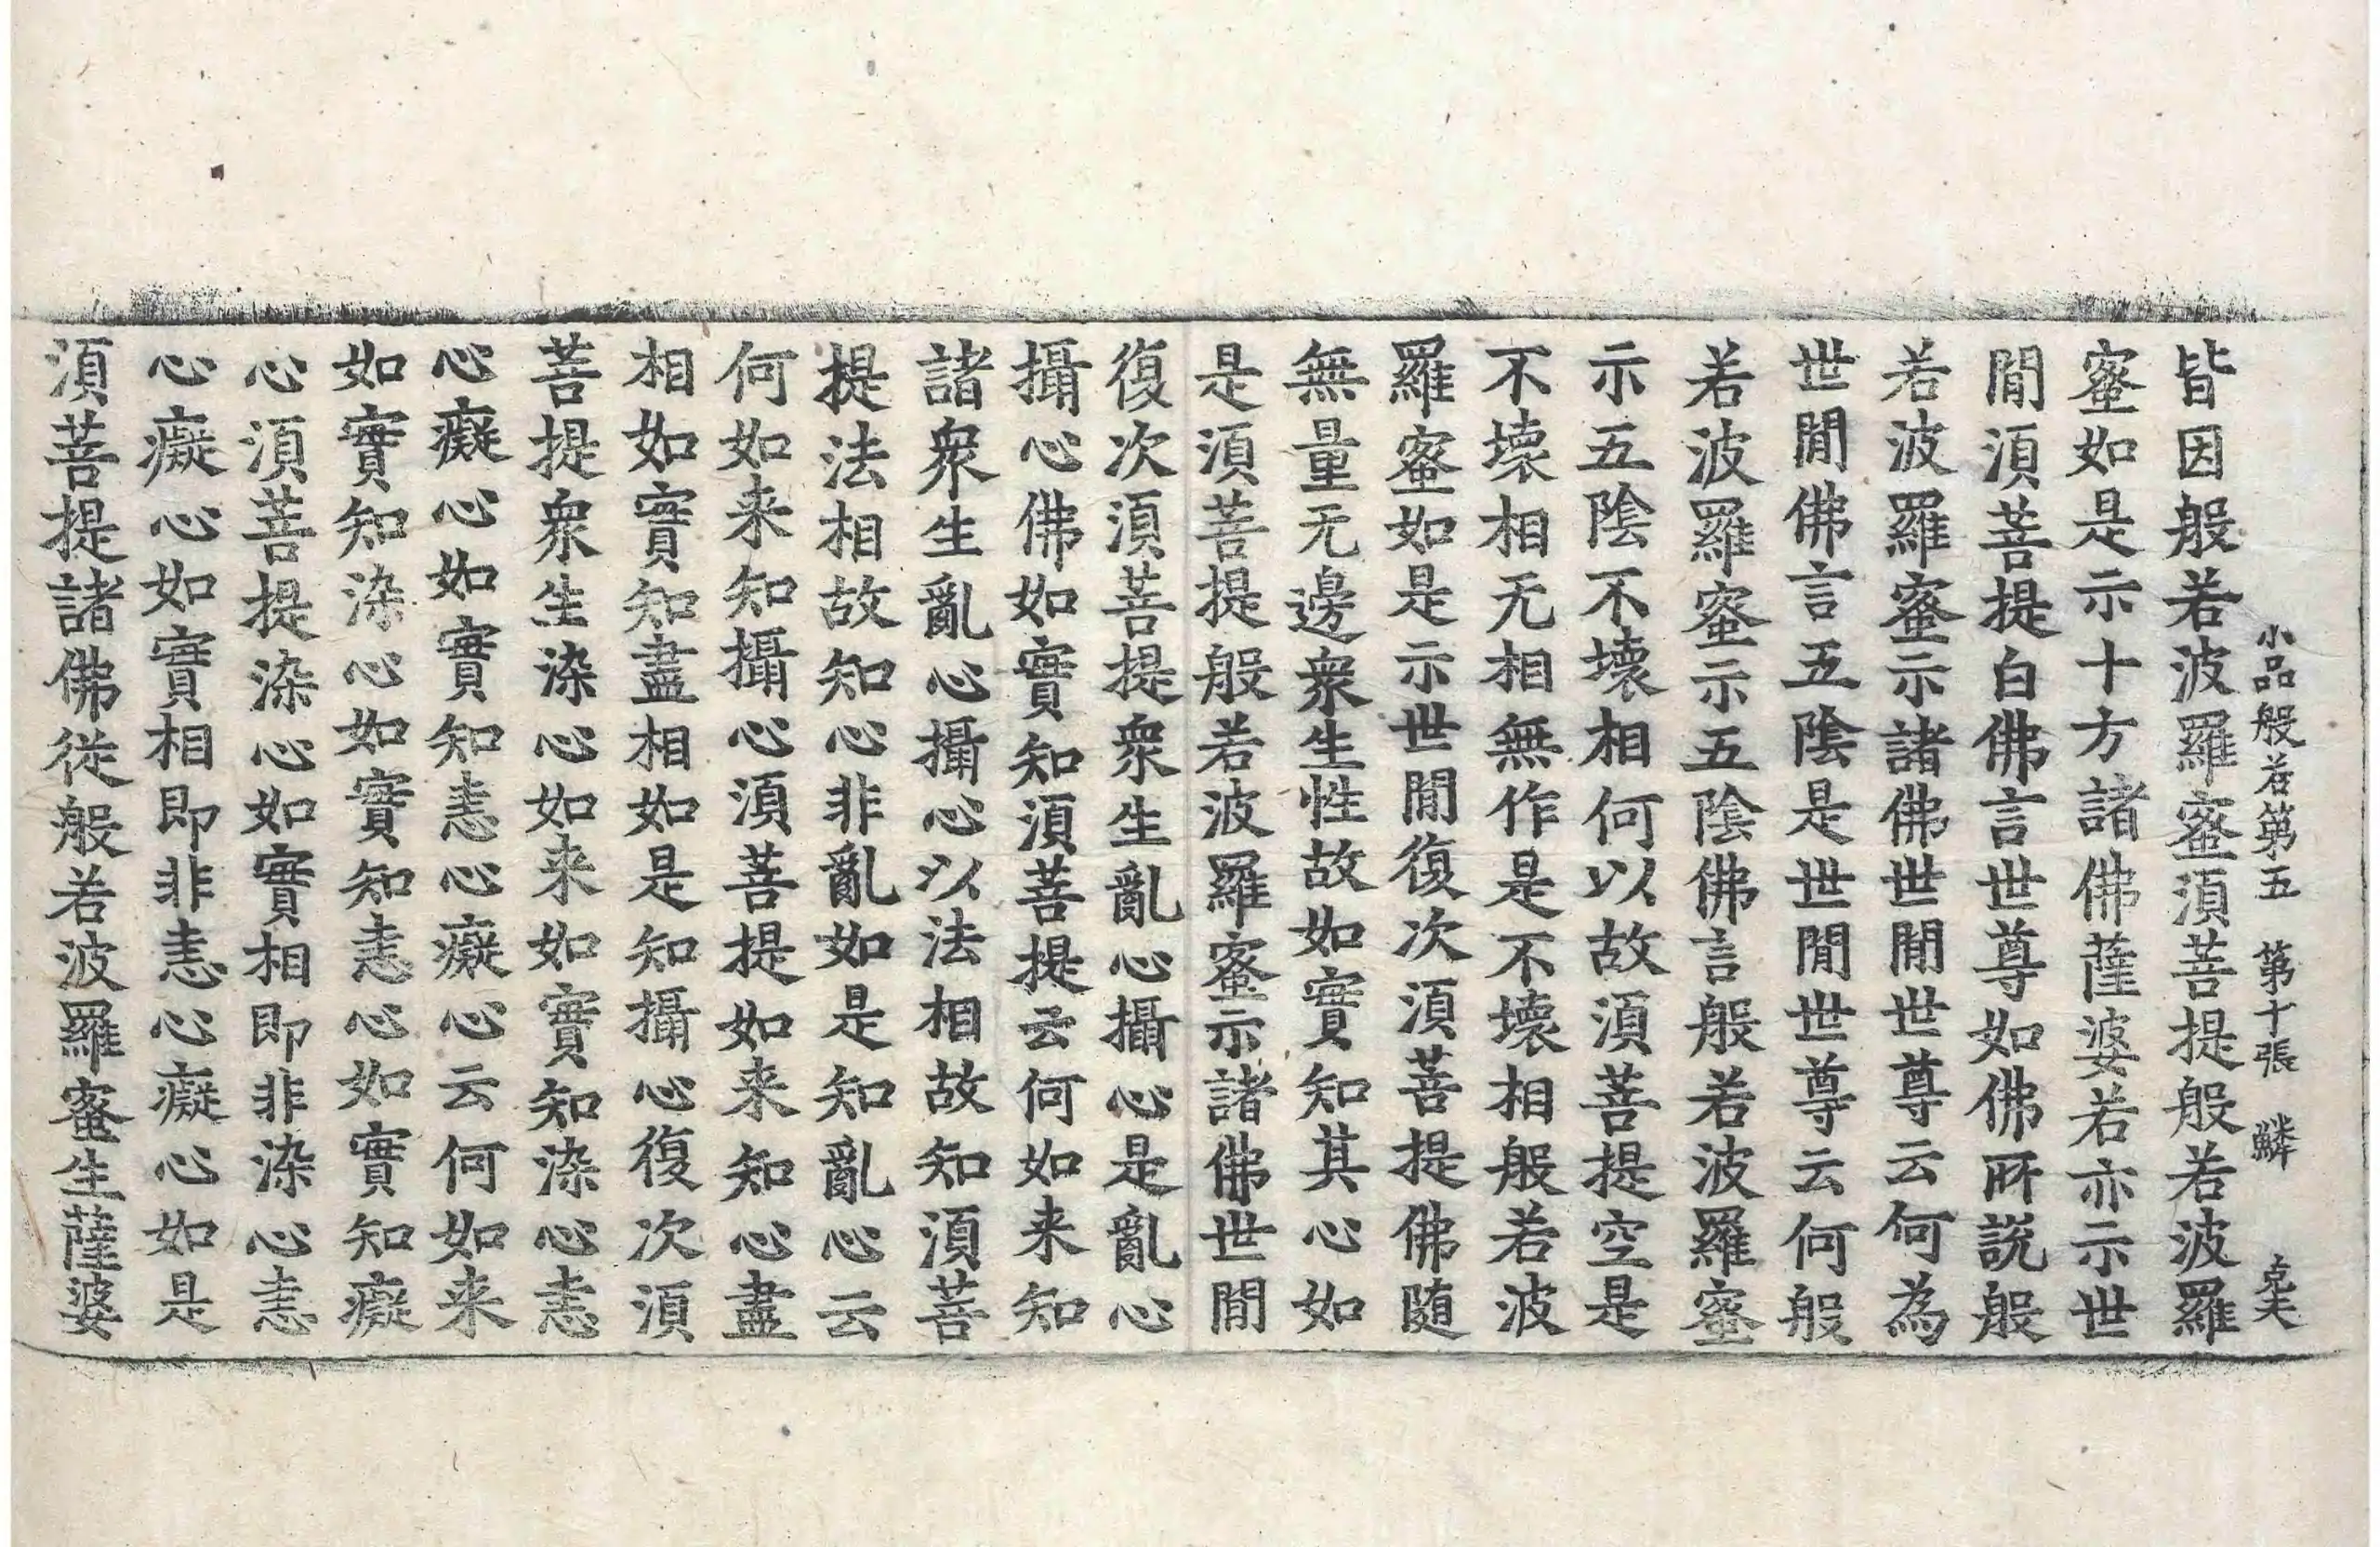 小品般若第五　第十張　鱗　克夫
皆因般若波羅蜜須菩提般若波羅
蜜如是示十方諸佛薩婆若亦示世
閒須菩提白佛言世尊如佛所說般
若波羅蜜示諸佛世閒世尊云何為
世閒佛言五陰是世閒世尊云何般
若波羅蜜示五陰佛言般若波羅蜜
示五陰不壞相何以故須菩提空是
不壞相无相無作是不壞相般若波
羅蜜如是示世閒復次須菩提佛随
無量无邊衆生性故如實知其心如
是須菩提般若波羅蜜示諸佛世閒
復次須菩提衆生亂心攝心是亂心
攝心佛如實知須菩提云何如来知
諸衆生亂心攝心以法相故知須菩
提法相故知心非亂如是知亂心云
何如来知攝心須菩提如来知心盡
相如實知盡相如是知攝心復次須
菩提衆生染心如来如實知染心恚
心癡心如實知恚心癡心云何如来
如實知染心如實知恚心如實知癡
心須菩提染心如實相即非染心恚
心癡心如實相即非恚心癡心如是
須菩提諸佛從般若波羅蜜生薩婆